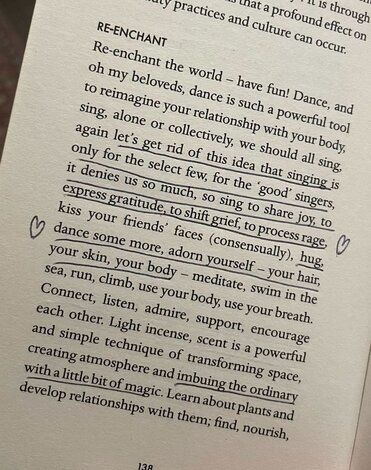 is that a profound effect on
uty practices and culture can occur.
RE-ENCHANT
Re-enchant the world – have fun! Dance, and
oh my beloveds, dance is such a powerful tool
to reimagine your relationship with your body,
sing, alone or collectively, we should all sing,
again let's get rid of this idea that singing is
only for the select few, for the 'good' singers,
it denies us so much, so sing to share joy, to
express gratitude, to shift grief, to process rage,
kiss your friends' faces (consensually), hug,
dance some more, adorn yourself – your hair,
your skin, your body – meditate, swim in the
sea, run, climb, use your body, use your breath.
Connect, listen, admire, support, encourage
each other. Light incense, scent is a powerful
and simple technique of transforming space,
creating atmosphere and imbuing the ordinary
with a little bit of magic. Learn about plants and
develop relationships with them; find, nourish,
138